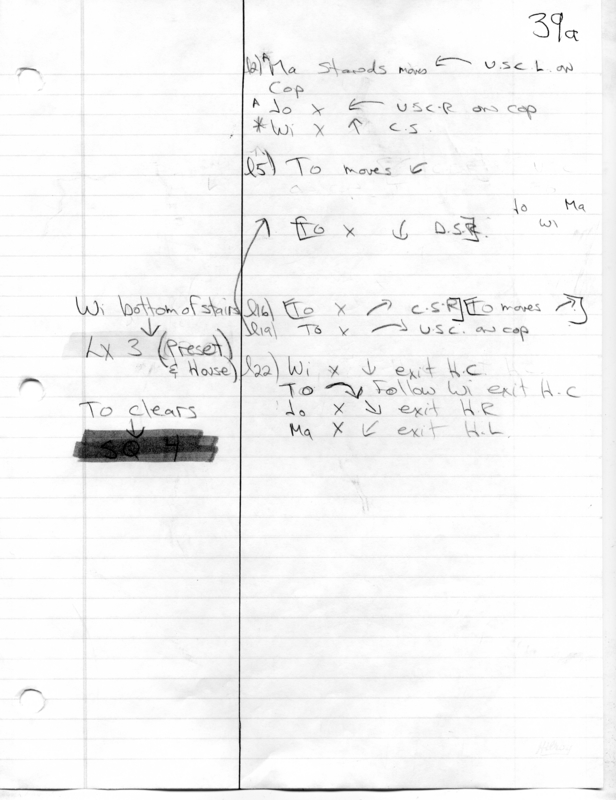 39a
l2) ^Ma stands moves ← U.S.C L. on
Cop
^ Jo x ← U.S.C.R on cop
* Wi x ↑ C.S.
l5) To moves ↙
[To x ↓ D.S.R].
Jo Ma
Wi
Wi bottom of stairs
↓
LX 3 (Preset
& House)
To clears
↓
SQ 4
l16) [To x ↗ C.S.R] [To moves ↗]
l19) To x → U.S.C. on cop
l22) Wi x ↓ exit H.C
To ↘ Follow Wi exit H.C
Jo x ↘ exit H.R
Ma x ↙ exit H.L.